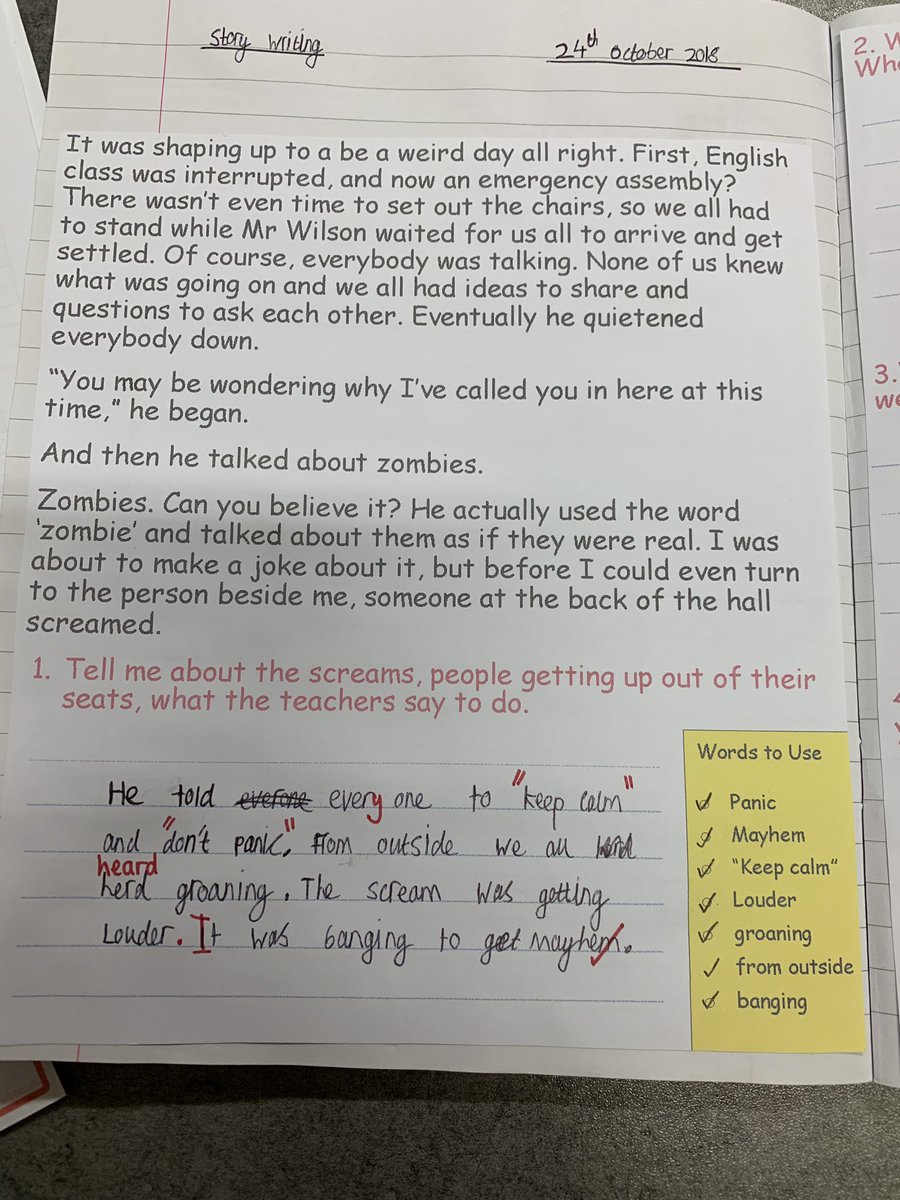 Story Writing
24th October 2018
It was shaping up to a be a weird day all right. First, English
class was interrupted, and now an emergency assembly?
There wasn't even time to set out the chairs, so we all had
to stand while Mr Wilson waited for us all to arrive and get
settled. Of course, everybody was talking. None of us knew
what was going on and we all had ideas to share and
questions to ask each other. Eventually he quietened
everybody down.
"You may be wondering why I've called you in here at this
time," he began.
And then he talked about zombies.
Zombies. Can you believe it? He actually used the word
'zombie' and talked about them as if they were real. I was
about to make a joke about it, but before I could even turn
to the person beside me, someone at the back of the hall
screamed.
1. Tell me about the screams, people getting up out of their
seats, what the teachers say to do.
He told every one to "keep calm"
and "don't panic". From outside we all
heard
herd groaning. The scream was getting
Louder. It was banging to get mayhem.
Words to Use
Panic
Mayhem
"Keep calm"
Louder
groaning
from outside
banging
2.
3.
we